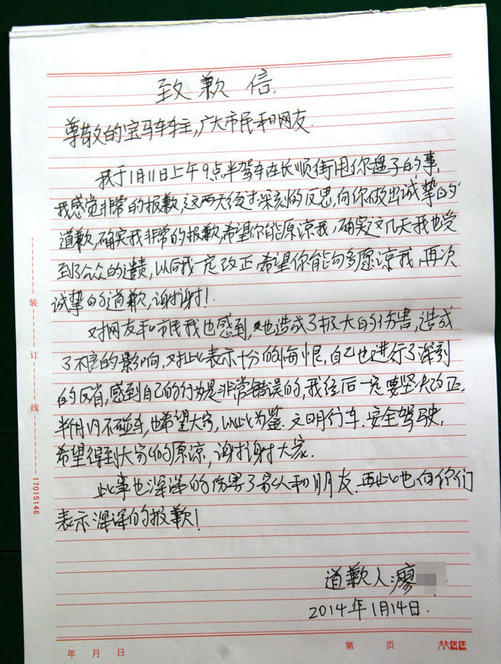 致歉信
尊敬的宝马车车主,广大市民和网友.
我于1月11日上午9点半驾车在长顺街用你盘子的事,
我感觉非常的报歉,这两天经过深刻的反思,向你做出诚挚的
道歉,确实我非常的报歉,希望你能原凉我,确实这几天我也受
到了公众的谴责,以后我一定改正,希望你能多原凉我,再次
诚挚的道歉,谢谢!.
对网友和市民我也感到,也造成了极大的伤害,造成
了不良的影响,对此表示十分的悔恨,自己也进行了深刻
的反省,感到自己的行为是非常错误的,我往后一定要坚决改正,
半月内不碰车,也希望大家,以此为鉴.文明行车.安全驾驶,
希望得到大家的原凉,谢谢大家.
此事也深深的伤害了家人和朋友.再此也向你们
表示深深的报歉!
道歉人:廖
2014年1月14日.
装
订
线
17015146
年 月 日
第 页